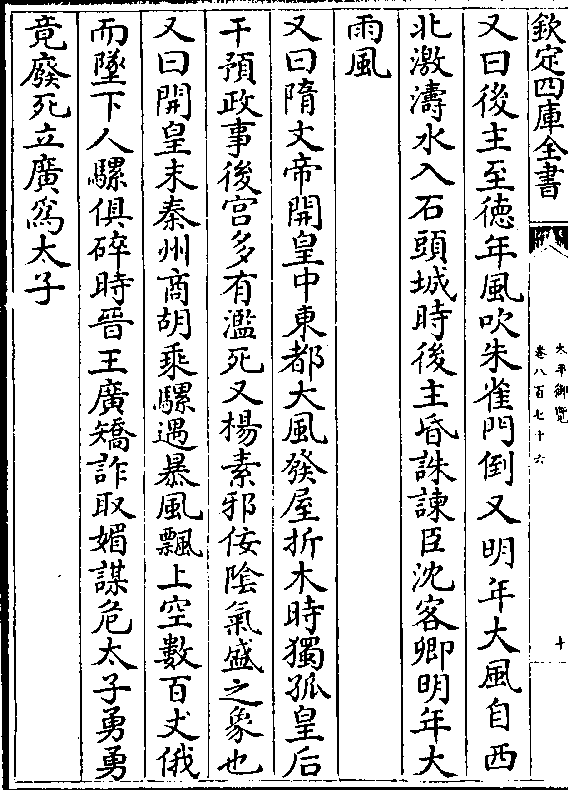 欽定四庫全書
太平御覽
卷八百七十六
十
又曰後主至徳年風吹朱雀門倒又明年大風自西
北激濤水入石頭城時後主昏誅諫臣沈客卿明年大
雨風
又曰隋文帝開皇中東都大風發屋折木時獨孤皇后
干預政事後宫多有濫死又楊素邪佞隂氣盛之象也
又曰開皇末秦州商胡乘騾遇暴風飄上空數百丈俄
而墜下人騾俱碎時晉王廣矯詐取媚謀危太子勇勇
竟廢死立廣爲太子